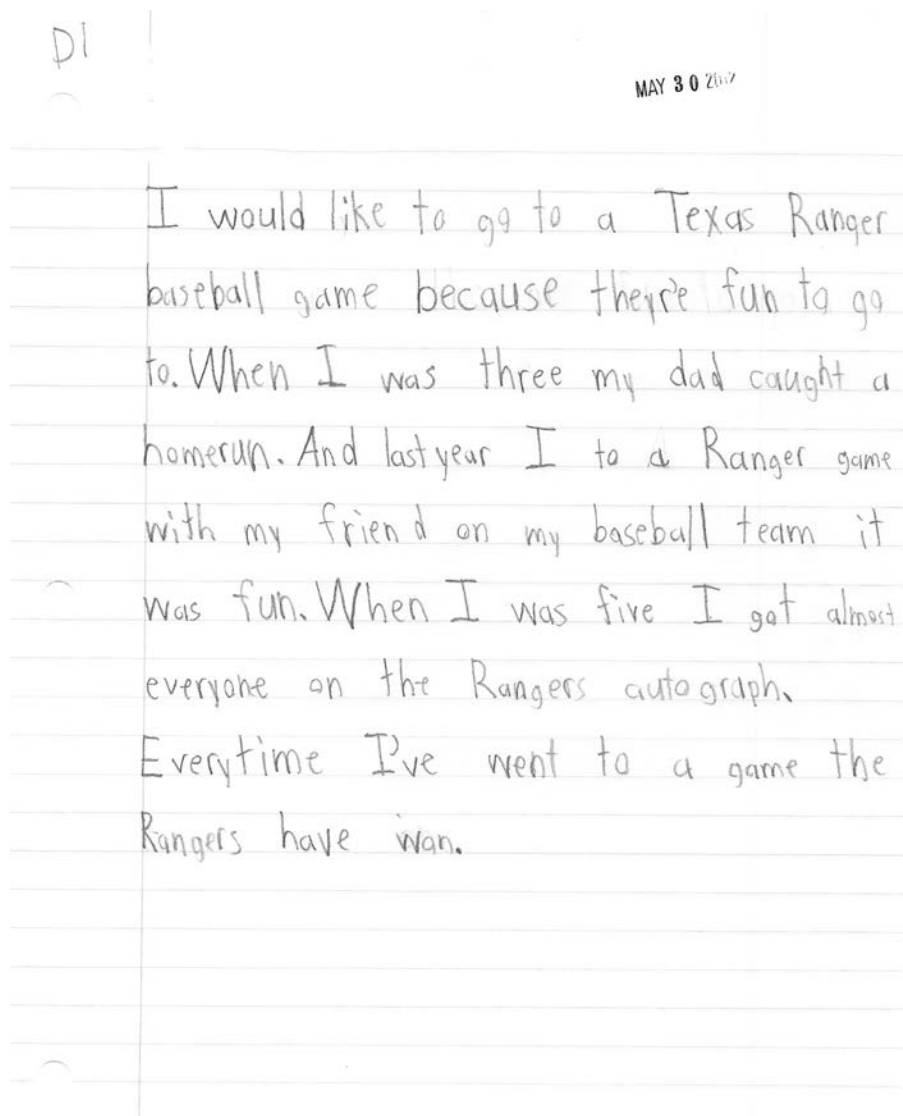 D1
MAY 30
I would like to go to a Texas Ranger
baseball game because they're fun to go
to. When I was three my dad caught a
homerun. And last year I to a Ranger game
with my friend on my baseball team it
was fun. When I was five I got almost
everyone on the Rangers autograph.
Everytime I've went to a game the
Rangers have won.